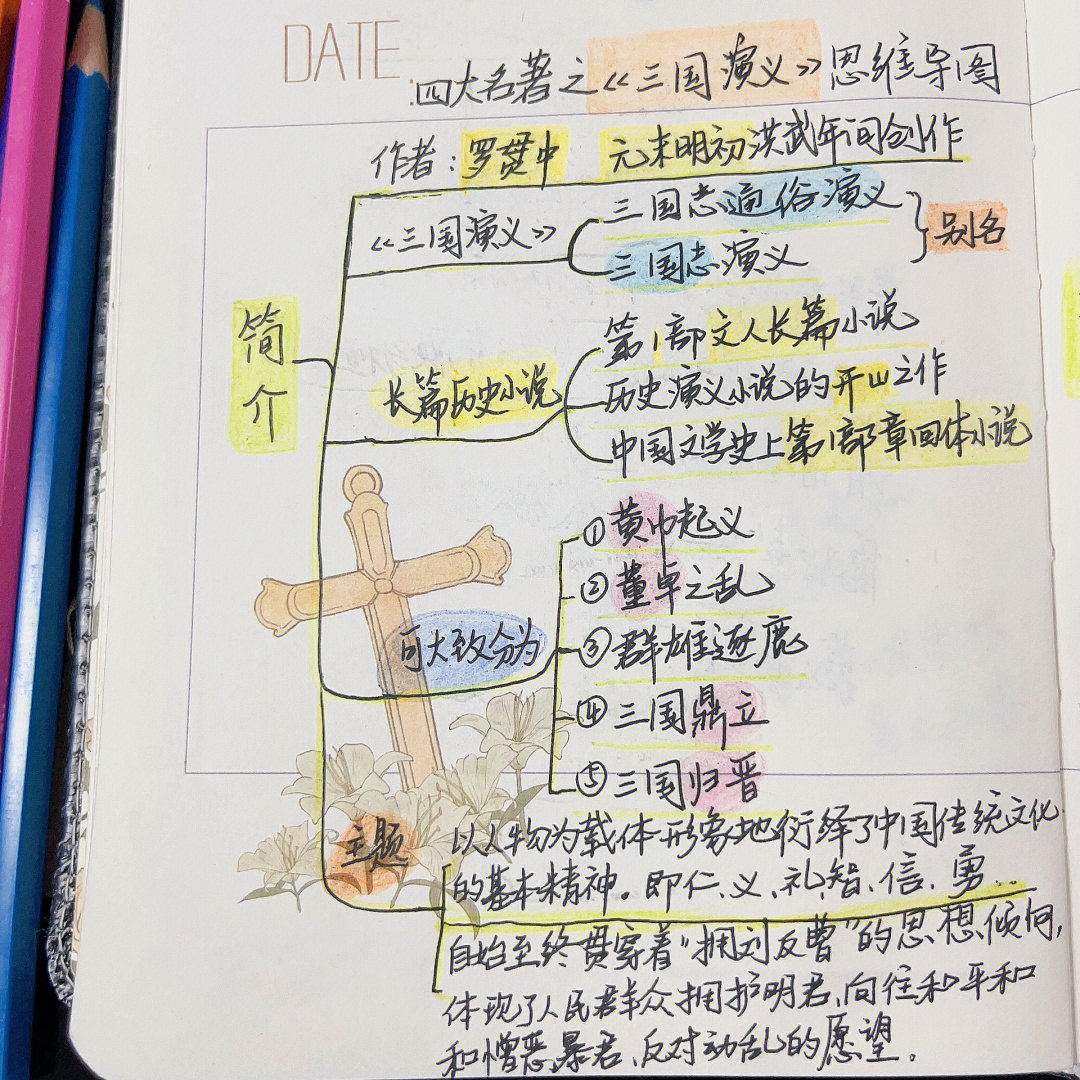 DATE
四大名著之《三国演义》思维导图
作者：罗贯中 元末明初洪武年间创作
《三国演义》
三国志通俗演义
三国志演义
别名
简介
长篇历史小说
第1部文人长篇小说
历史演义小说的开山之作
中国文学史上第1部章回体小说
可大致分为
①黄巾起义
②董卓之乱
③群雄逐鹿
④三国鼎立
⑤三国归晋
主题
以人物为载体形象地衍绎了中国传统文化
的基本精神。即仁、义、礼、智、信、勇…
自始至终贯穿着“拥刘反曹”的思想倾向，
体现了人民群众拥护明君、向往和平和
和憎恶暴君、反对动乱的愿望。